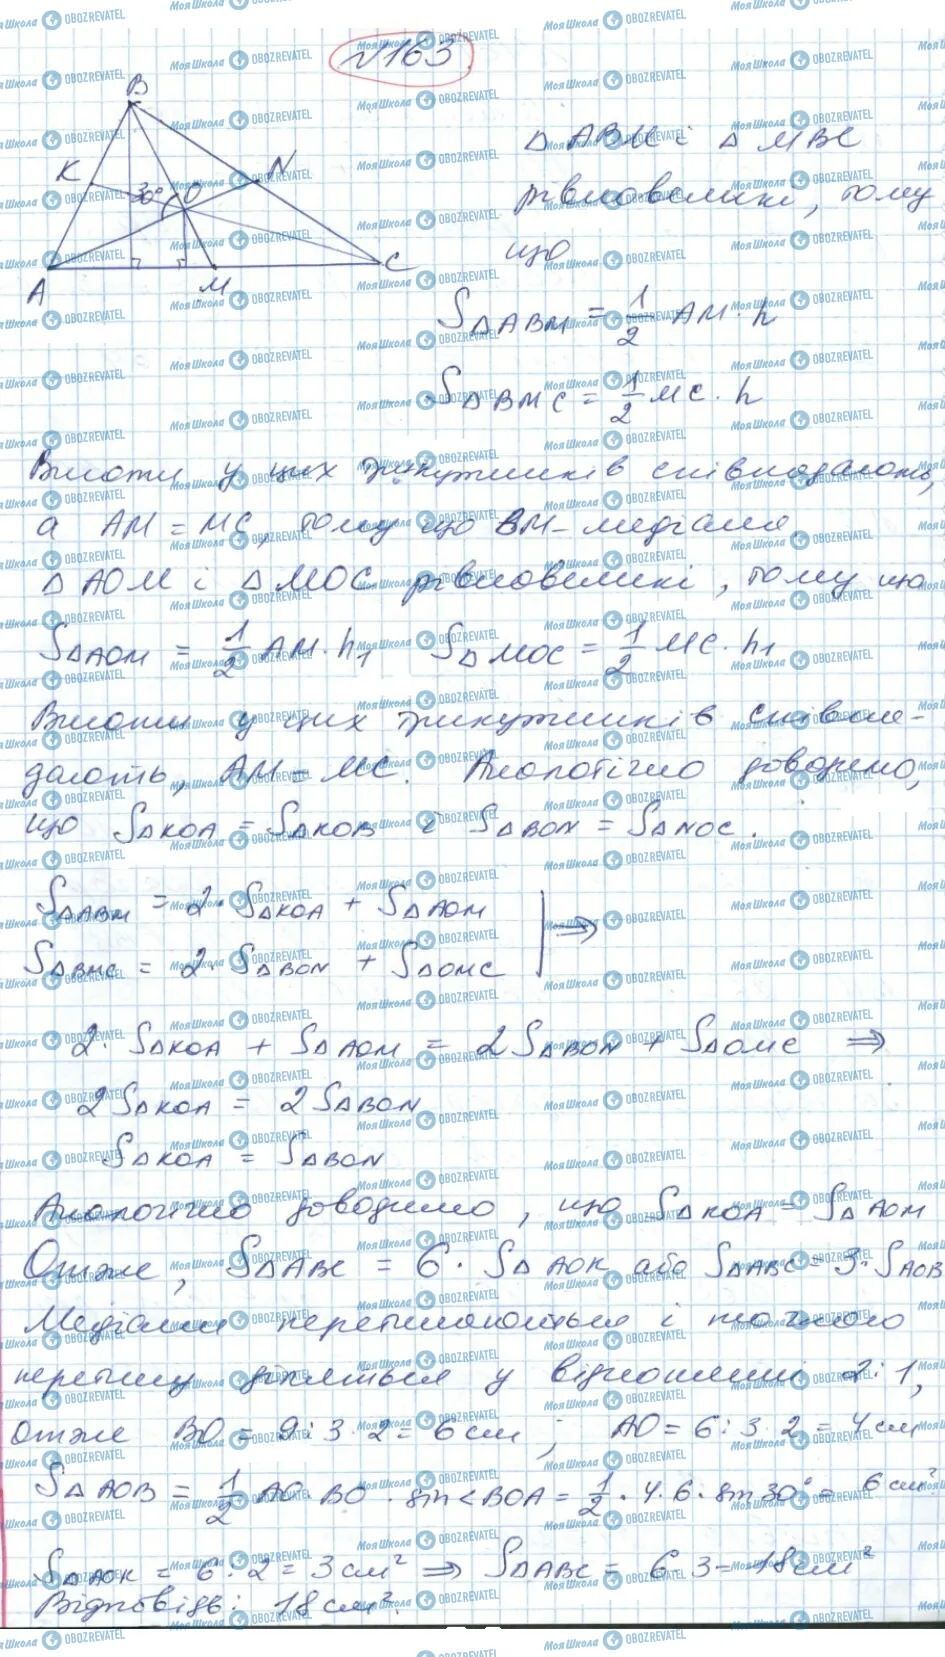 № 1163.
B
K
N
30°
O
A
M
C
△ ABM і △ MBC
рівновеликі, тому
що
S△ABM = 1/2 AM · h
S△BMC = 1/2 MC · h
Висоти у цих трикутників співпадають,
а AM = MC, тому що BM - медіана.
△ AOM і △ MOC рівновеликі, тому що
S△AOM = 1/2 AM · h₁ S△MOC = 1/2 MC · h₁
Висоти у цих трикутників співпа-
дають, AM = MC. Аналогічно доводимо,
що S△KOA = S△KOB і S△BON = S△NOC.
S△ABM = 2 · S△KOA + S△AOM
S△BMC = 2 · S△BON + S△OMC | ⇒
2 · S△KOA + S△AOM = 2S△BON + S△OMC ⇒
2S△KOA = 2S△BON
S△KOA = S△BON
Аналогічно доводимо, що S△KOA = S△AOM
Отже, S△ABC = 6 · S△AOK або S△ABC = 3 · SAOB
Медіани перетинаються і точкою
перетину діляться у відношенні 2:1,
отже BO = 9 : 3 · 2 = 6 см; AO = 6 : 3 · 2 = 4 см
S△AOB = 1/2 AO · BO · sin<BOA = 1/2 · 4 · 6 · sin 30° = 6 см²
S△AOK = 6 : 2 = 3 см² ⇒ S△ABC = 6 · 3 = 18 см²
Відповідь: 18 см².